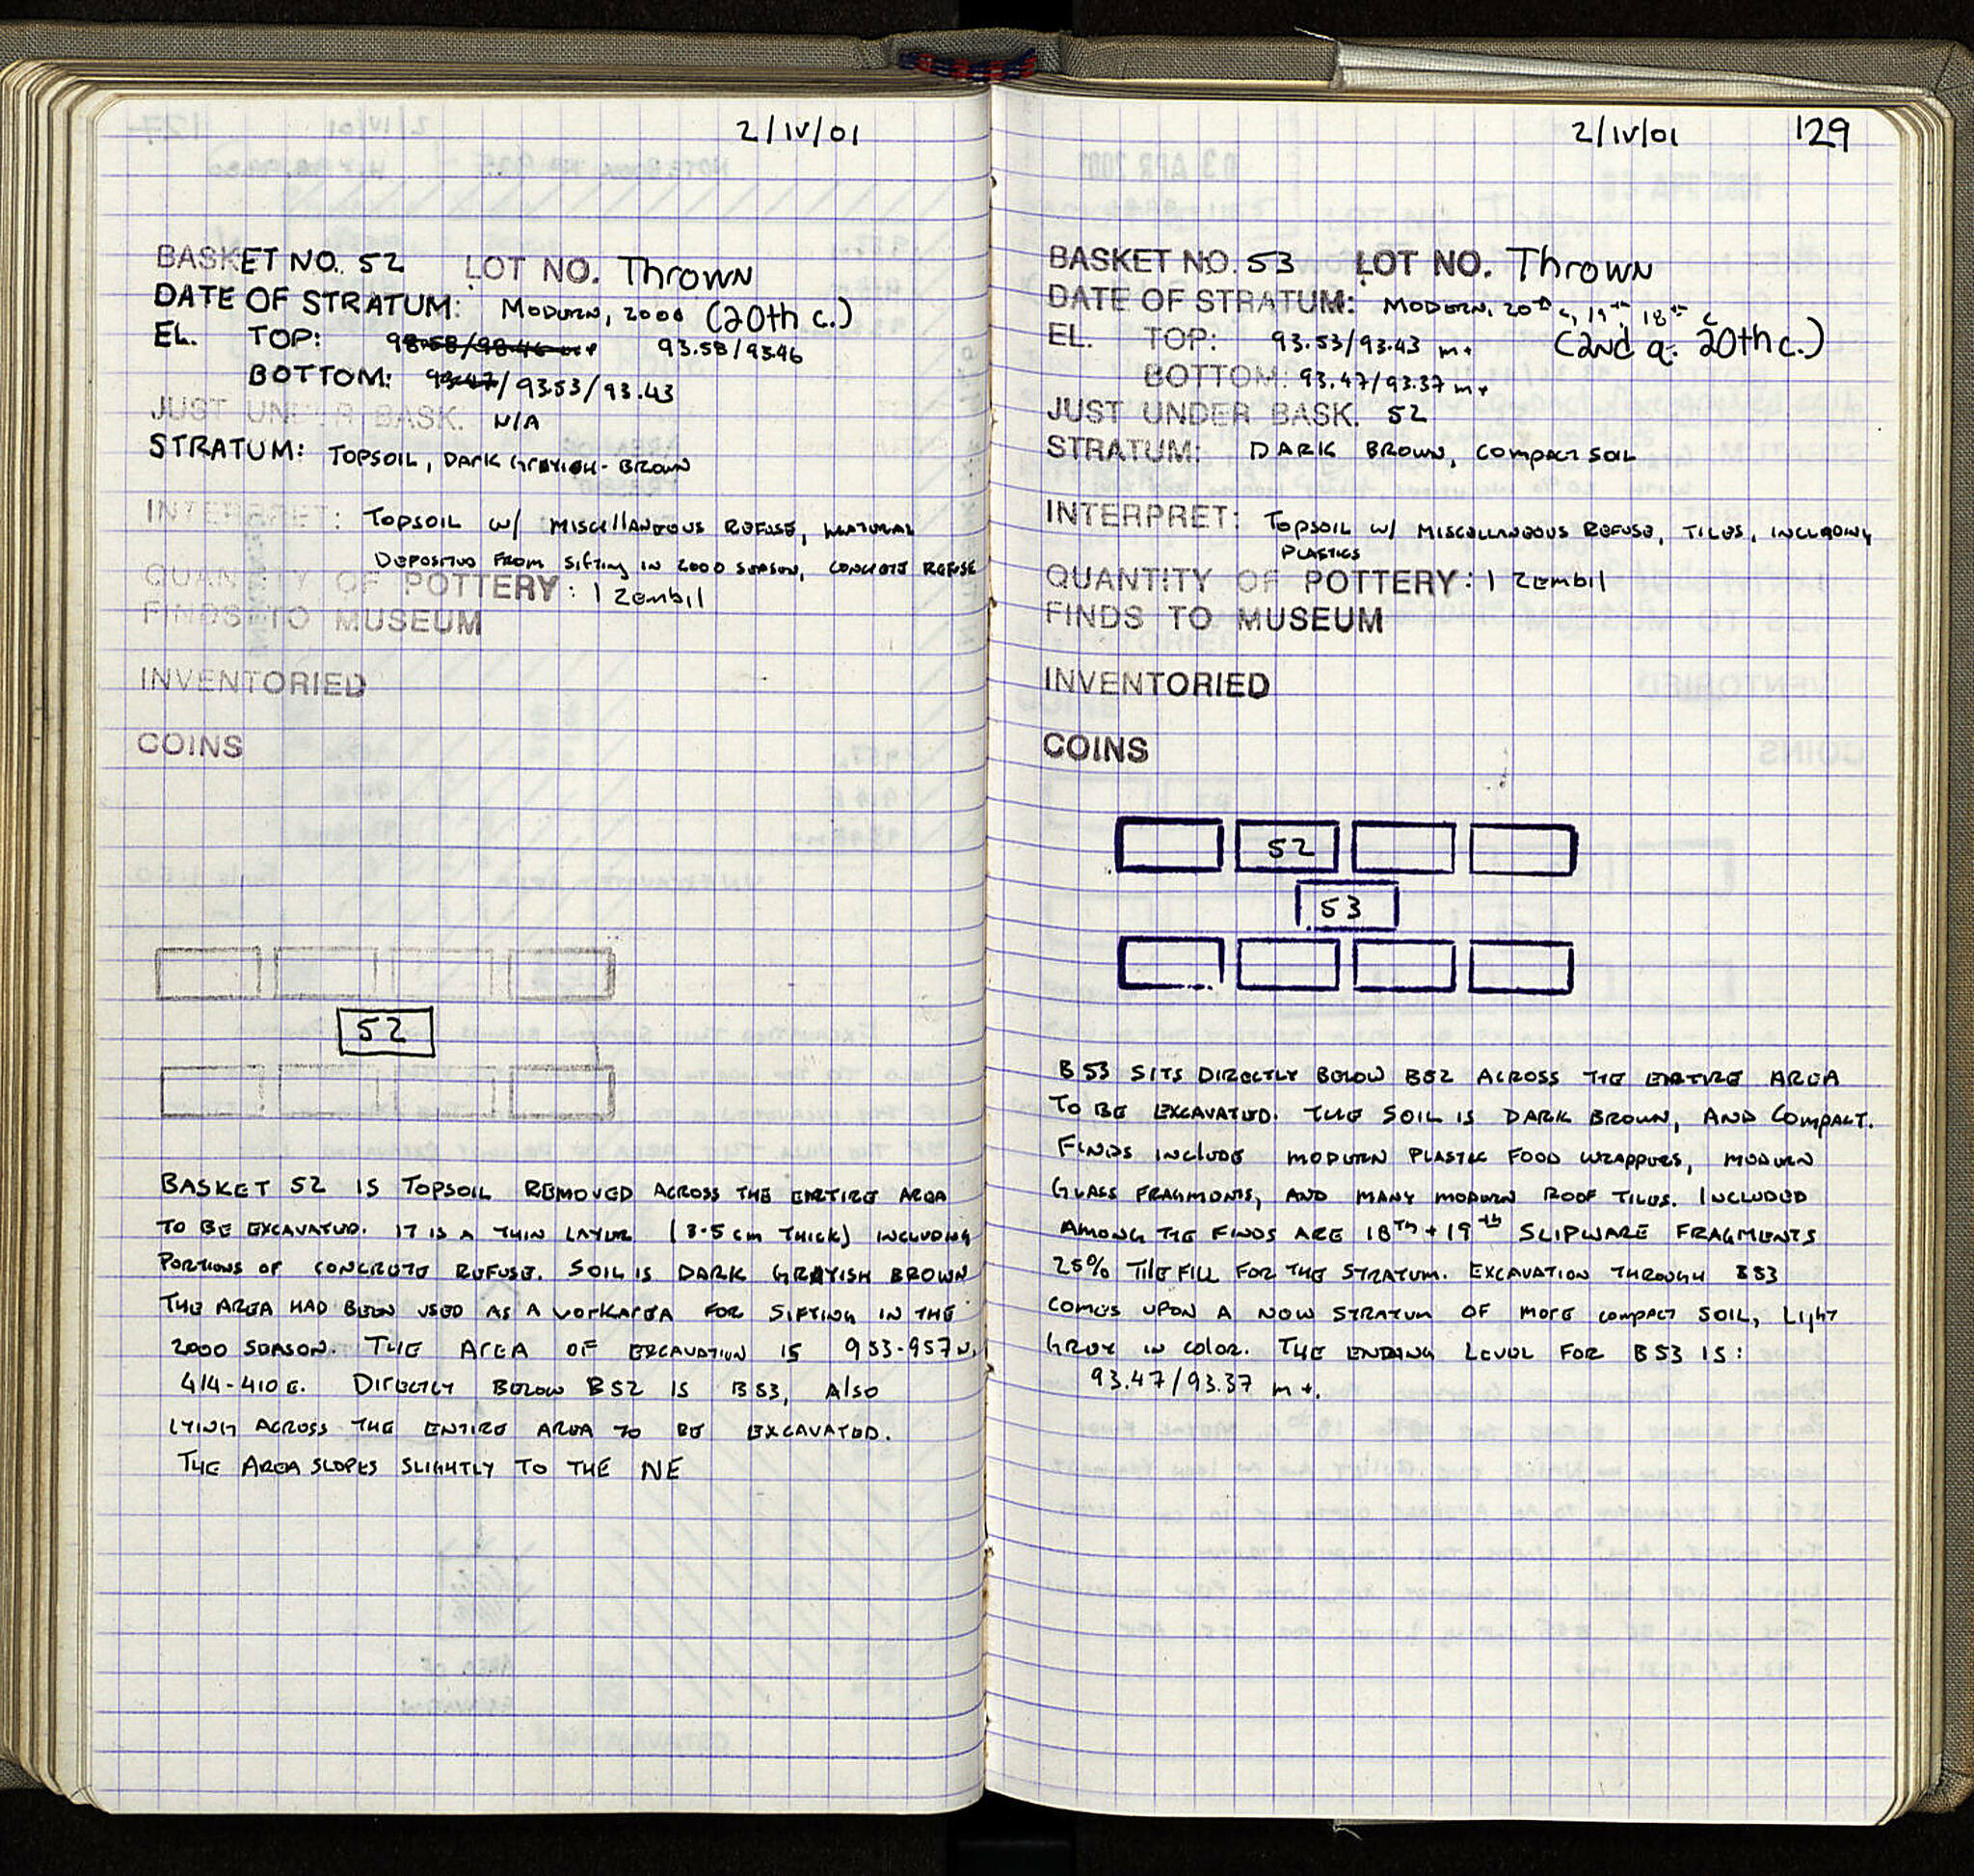 2/IV/01
BASKET NO. 52 LOT NO. Thrown
DATE OF STRATUM: MODERN, 2000 (20th c.)
EL. TOP: 98.58/98.46 93.58/93.46
BOTTOM: 93.47/93.53/93.43
JUST UNDER BASK. N/A
STRATUM: TOPSOIL, DARK GRAYISH-BROWN
INTERPRET: TOPSOIL W/ MISCELLANEOUS REFUSE, MATERIAL
DEPOSITED FROM SIFTING IN 2000 SEASON, CONCRETE REFUSE
QUANTITY OF POTTERY: 1 ZEMBIL
FINDS TO MUSEUM
INVENTORIED
COINS
52
BASKET 52 IS TOPSOIL REMOVED ACROSS THE ENTIRE AREA
TO BE EXCAVATED. IT IS A THIN LAYER (3-5 cm THICK) INCLUDING
PORTIONS OF CONCRETE REFUSE. SOIL IS DARK GRAYISH BROWN
THE AREA HAD BEEN USED AS A WORKAREA FOR SIFTING IN THE
2000 SEASON. THE AREA OF EXCAVATION IS 953-957 N,
414-410 E. DIRECTLY BELOW B52 IS B53, ALSO
LYING ACROSS THE ENTIRE AREA TO BE EXCAVATED.
THE AREA SLOPES SLIGHTLY TO THE NE
2/IV/01 129
BASKET NO. 53 LOT NO. Thrown
DATE OF STRATUM: MODERN, 20th c, 19th, 18th c
EL. TOP: 93.53/93.43 m+ (2nd q. 20th c.)
BOTTOM: 93.47/93.37 m+
JUST UNDER BASK. 52
STRATUM: DARK BROWN, COMPACT SOIL
INTERPRET: TOPSOIL W/ MISCELLANEOUS REFUSE, TILES, INCLUDING
PLASTICS
QUANTITY OF POTTERY: 1 ZEMBIL
FINDS TO MUSEUM
INVENTORIED
COINS
52
53
B53 SITS DIRECTLY BELOW B52 ACROSS THE ENTIRE AREA
TO BE EXCAVATED. THE SOIL IS DARK BROWN, AND COMPACT.
FINDS INCLUDE MODERN PLASTIC FOOD WRAPPERS, MODERN
GLASS FRAGMENTS, AND MANY MODERN ROOF TILES. INCLUDED
AMONG THE FINDS ARE 18TH + 19th SLIPWARE FRAGMENTS
25% TILE FILL FOR THE STRATUM. EXCAVATION THROUGH B53
COMES UPON A NEW STRATUM OF MORE COMPACT SOIL, LIGHT
GREY IN COLOR. THE ENDING LEVEL FOR B53 IS:
93.47/93.37 m+.